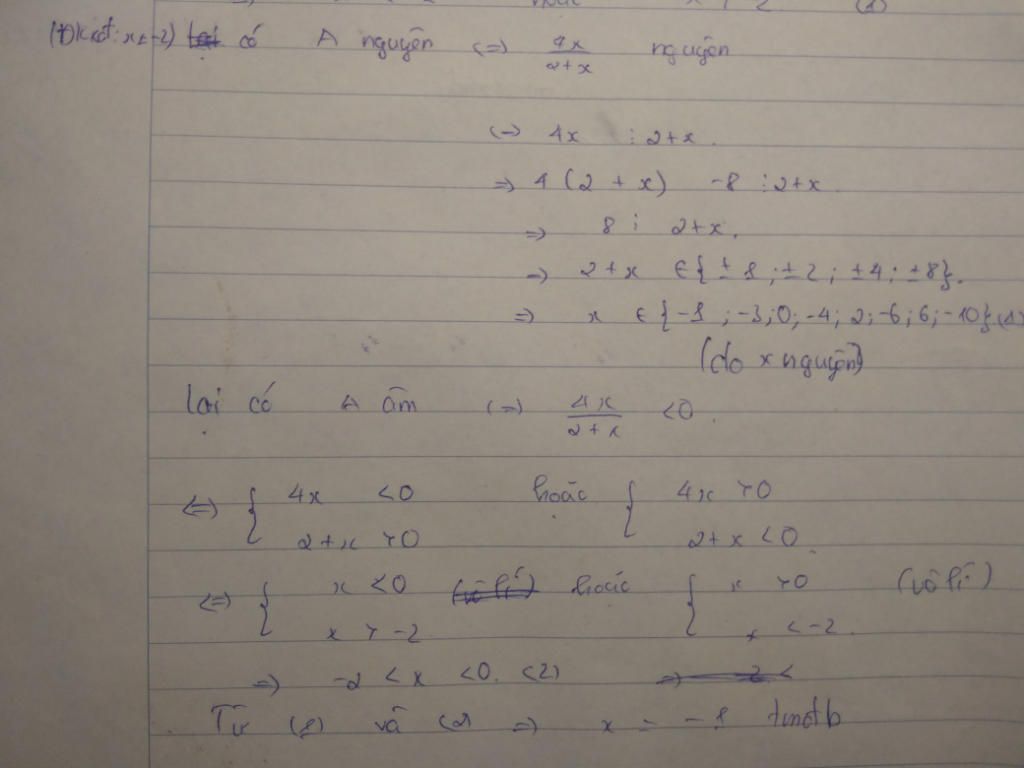 có A nguyên <=> 4x/2+x nguyên
<=> 4x ⋮ 2+x.
=> 4 (2 + x) -8 ⋮ 2+x.
=> 8 ⋮ 2+x.
=> 2+x ∈ { ± 1 ; ± 2 ; ± 4 ; ± 8 }.
=> x ∈ { -1 ; -3; 0; -4; 2; -6; 6; -10} (1)
(do x nguyên)
lại có A âm <=> 4x/2+x < 0.
<=> { 4x < 0 hoặc { 4x > 0
2+x > 0 2+x < 0.
<=> { x < 0 hoặc { x > 0 (vô lí)
x > -2 x < -2.
=> -2 < x < 0. (2)
Từ (1) và (2) => x = -1 tmđtb